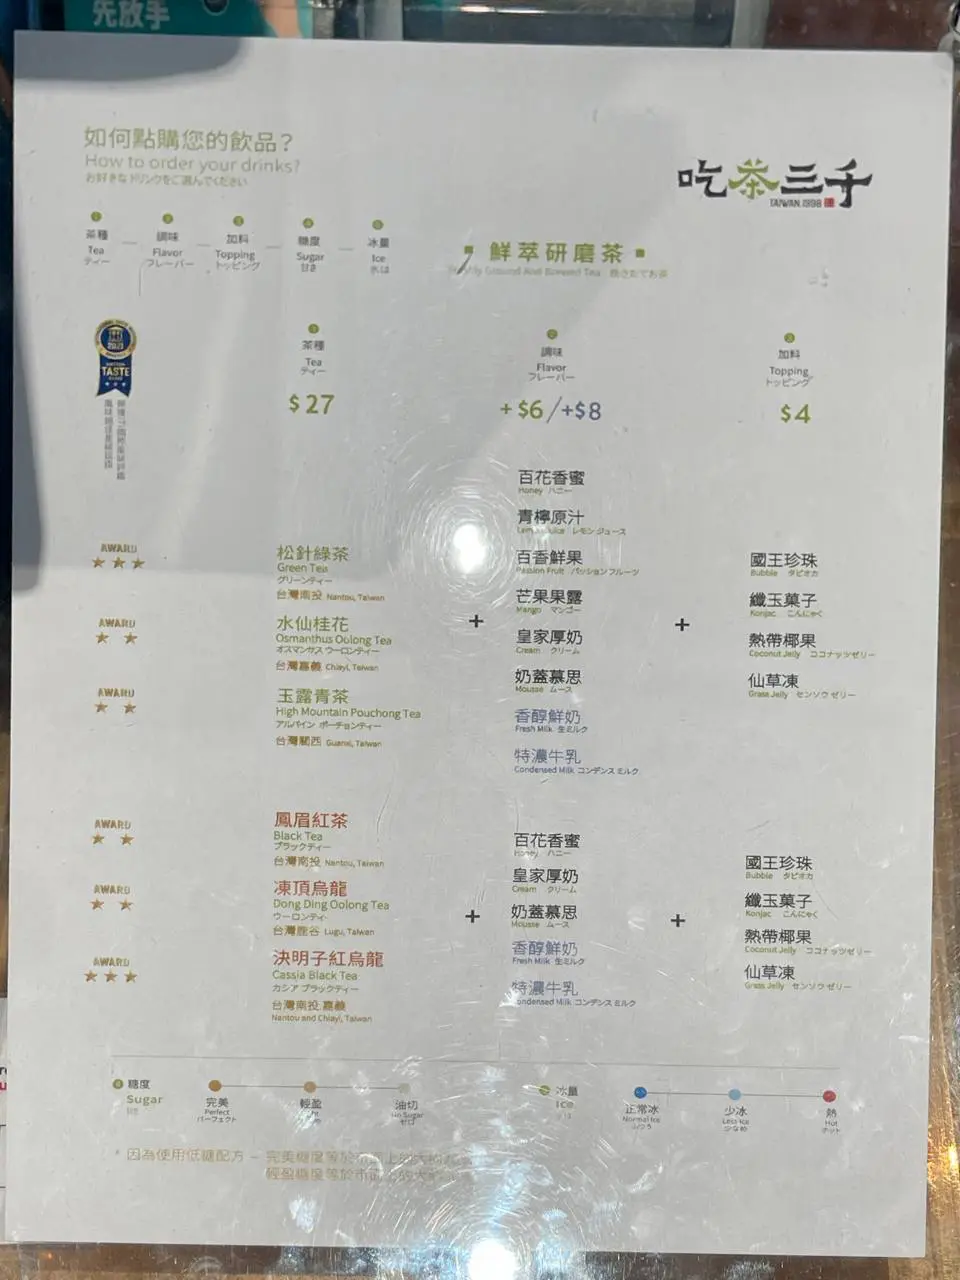 先放手
如何點購您的飲品？
How to order your drinks?
お好きなドリンクをご選んでください
吃茶三千
TAIWAN.1998
1 2 3 4 5
茶種 調味 加料 糖度 冰量
Tea Flavor Topping Sugar Ice
ティー フレーバー トッピング 甘さ 氷は
鮮萃研磨茶
Ground And Brewed Tea 挽きたてお茶
2021
TASTE
1 茶種
Tea
ティー
$27
2 調味
Flavor
フレーバー
+$6/+$8
3 加料
Topping
トッピング
$4
AWARD
松針綠茶
Green Tea
グリーンティー
台灣南投 Nantou, Taiwan
AWARD
水仙桂花
Osmanthus Oolong Tea
オスマンサス ウーロンティー
台灣嘉義 Chiayi, Taiwan
AWARD
玉露青茶
High Mountain Pouchong Tea
アルパイン ポーチョンティー
台灣關西 Guanxi, Taiwan
+
百花香蜜
Honey ハニー
青檸原汁
レモンジュース
百香鮮果
Passion Fruit パッションフルーツ
芒果果露
Mango マンゴー
皇家厚奶
Cream クリーム
奶蓋慕思
Mousse ムース
香醇鮮奶
Fresh Milk 生ミルク
特濃牛乳
Condensed Milk コンデンス ミルク
+
國王珍珠
Bubble タピオカ
纖玉菓子
Konjac こんにゃく
熱帶椰果
Coconut Jelly ココナッツゼリー
仙草凍
Grass Jelly センソウ ゼリー
AWARD
鳳眉紅茶
Black Tea
ブラックティー
台灣南投 Nantou, Taiwan
AWARD
凍頂烏龍
Dong Ding Oolong Tea
ウーロンティ
台灣鹿谷 Lugu, Taiwan
AWARD
決明子紅烏龍
Cassia Black Tea
カシア ブラックティー
台灣南投.嘉義
Nantou and Chiayi, Taiwan
+
百花香蜜
Honey ハニー
皇家厚奶
Cream クリーム
奶蓋慕思
Mousse ムース
香醇鮮奶
Fresh Milk 生ミルク
特濃牛乳
Condensed Milk コンデンス ミルク
+
國王珍珠
Bubble タピオカ
纖玉菓子
Konjac こんにゃく
熱帶椰果
Coconut Jelly ココナッツゼリー
仙草凍
Grass Jelly センソウ ゼリー
4 糖度
Sugar
甘さ
完美
Perfect
パーフェクト
輕盈
油切
No Sugar
ゼロ
5 冰量
Ice
正常冰
Normal Ice
ふつう
少冰
Less Ice
少なめ
熱
Hot
ホット
* 因為使用低糖配方 – 完美糖度等於市面上的大約
輕盈糖度等於市面上的大約